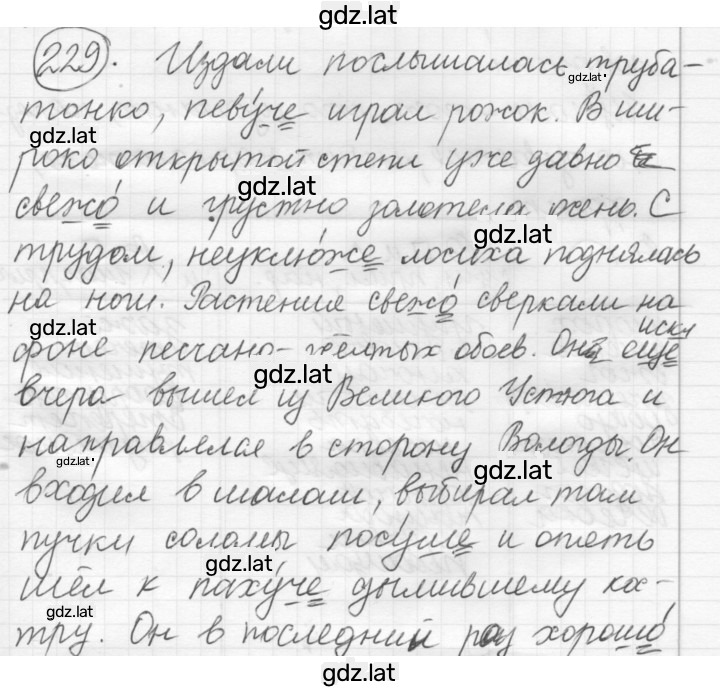 gdz.lat
229. Издали послышалась труба-
gdz.lat
тонко, певуче играл рожок. В ши-
gdz.lat
роко открытой степи уже давно
gdz.lat
свежо и грустно золотела осень. С
gdz.lat
трудом, неуклюже лосиха поднялась
на ноги. Растения свежо сверкали на
gdz.lat
иски
фоне песчано-желтых обоев. Он ещё
gdz.lat
вчера вышел из Великого Устюга и
направлялся в сторону Вологды. Он
gdz.lat
gdz.lat
входил в шалаш, выбирал там
пучки соломы посуше и опять
gdz.lat
шёл к пахуче дымившему кос-
gdz.lat
тру. Он в последний раз хорошо
gdz.lat